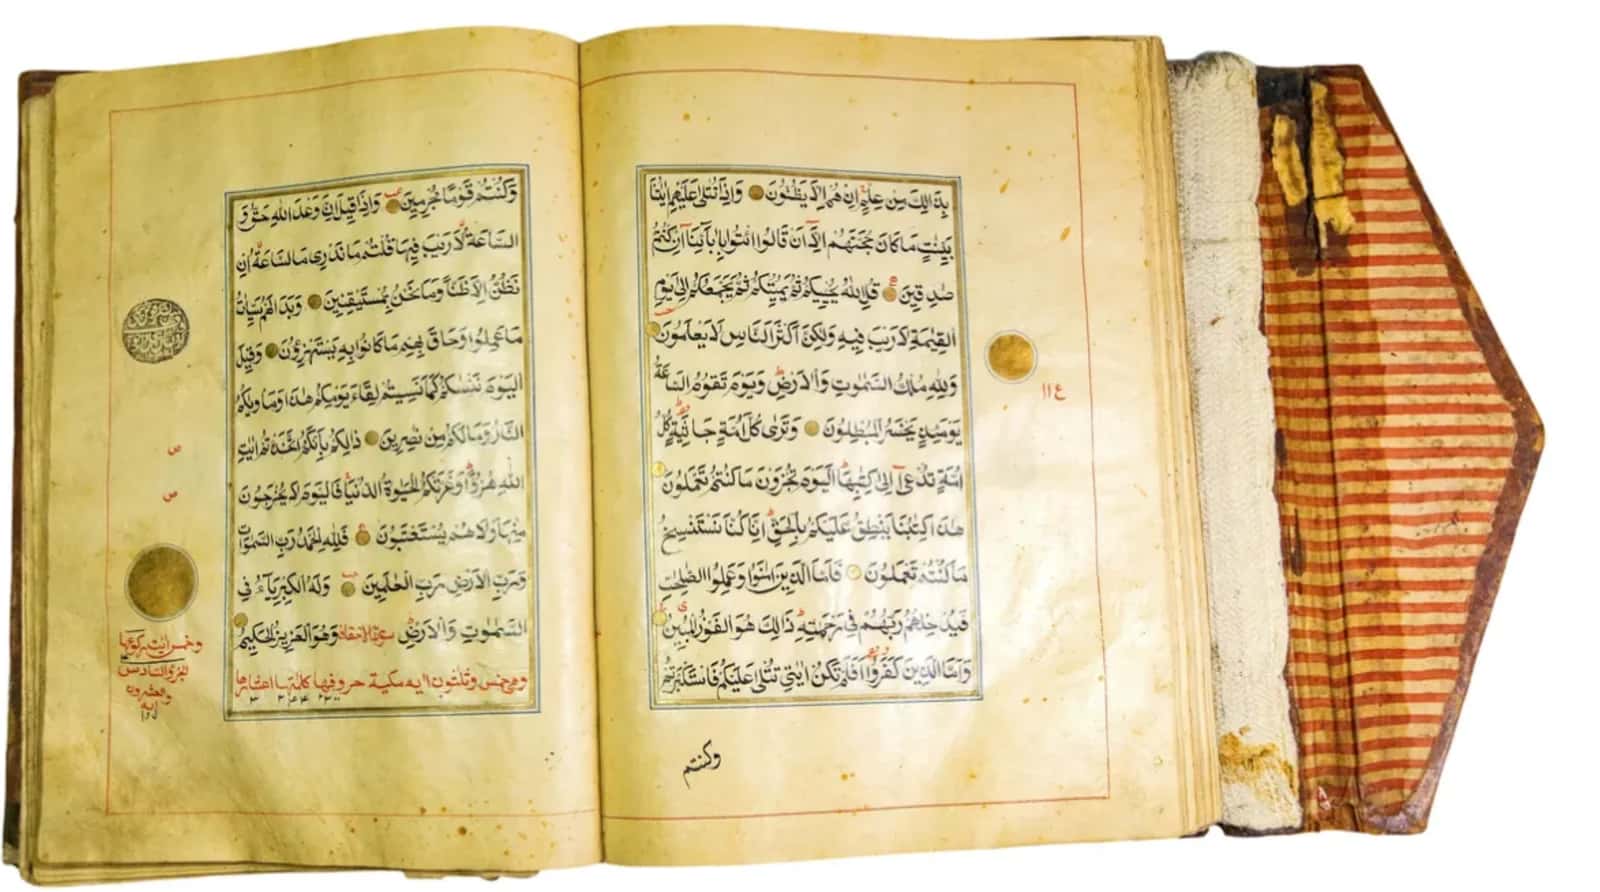 بِذَالِكَ مِنْ عِلْمٍ اِنْ هُمْ اِلَّا يَظُنُّونَ وَاِذَا تُتْلٰى عَلَيْهِمْ اٰيٰتُنَا
بَيِّنٰتٍ مَا كَانَ حُجَّتَهُمْ اِلَّا اَنْ قَالُوا ائْتُوا بِاٰبَائِنَا اِنْ كُنْتُمْ
صٰدِقِينَ قُلِ اللهُ يُحْيِيكُمْ ثُمَّ يُمِيتُكُمْ ثُمَّ يَجْمَعُكُمْ اِلٰى يَوْمِ
الْقِيٰمَةِ لَا رَيْبَ فِيهِ وَلٰكِنَّ اَكْثَرَ النَّاسِ لَا يَعْلَمُونَ
وَلِلّٰهِ مُلْكُ السَّمٰوٰتِ وَالْاَرْضِ وَيَوْمَ تَقُومُ السَّاعَةُ
يَوْمَئِذٍ يَخْسَرُ الْمُبْطِلُونَ وَتَرٰى كُلَّ اُمَّةٍ جَاثِيَةً كُلُّ
اُمَّةٍ تُدْعٰى اِلٰى كِتٰبِهَا اَلْيَوْمَ تُجْزَوْنَ مَا كُنْتُمْ تَعْمَلُونَ
هٰذَا كِتٰبُنَا يَنْطِقُ عَلَيْكُمْ بِالْحَقِّ اِنَّا كُنَّا نَسْتَنْسِخُ
مَا كُنْتُمْ تَعْمَلُونَ فَاَمَّا الَّذِينَ اٰمَنُوا وَعَمِلُوا الصّٰلِحٰتِ
فَيُدْخِلُهُمْ رَبُّهُمْ فِي رَحْمَتِهِ ذَالِكَ هُوَ الْفَوْزُ الْمُبِينُ
وَاَمَّا الَّذِينَ كَفَرُوا اَفَلَمْ تَكُنْ اٰيٰتِي تُتْلٰى عَلَيْكُمْ فَاسْتَكْبَرْتُمْ
وكنتم
ع ١١
وَكُنْتُمْ قَوْمًا مُجْرِمِينَ وَاِذَا قِيلَ اِنَّ وَعْدَ اللهِ حَقٌّ وَ
السَّاعَةُ لَا رَيْبَ فِيهَا قُلْتُمْ مَا نَدْرِى مَا السَّاعَةُ اِنْ
نَظُنُّ اِلَّا ظَنًّا وَمَا نَحْنُ بِمُسْتَيْقِنِينَ وَبَدَا لَهُمْ سَيِّاٰتُ
مَا عَمِلُوا وَحَاقَ بِهِمْ مَا كَانُوا بِهِ يَسْتَهْزِؤُنَ وَقِيلَ
الْيَوْمَ نَنْسٰكُمْ كَمَا نَسِيتُمْ لِقَاءَ يَوْمِكُمْ هٰذَا وَمَاْوٰيكُمُ
النَّارُ وَمَا لَكُمْ مِنْ نٰصِرِينَ ذٰلِكُمْ بِاَنَّكُمُ اتَّخَذْتُمْ اٰيٰتِ
اللهِ هُزُوًا وَغَرَّتْكُمُ الْحَيٰوةُ الدُّنْيَا فَالْيَوْمَ لَا يُخْرَجُونَ
مِنْهَا وَلَا هُمْ يُسْتَعْتَبُونَ فَلِلّٰهِ الْحَمْدُ رَبِّ السَّمٰوٰتِ
وَرَبِّ الْاَرْضِ رَبِّ الْعٰلَمِينَ وَلَهُ الْكِبْرِيَاءُ فِي
السَّمٰوٰتِ وَالْاَرْضِ سورة الاحقاف وَهُوَ الْعَزِيزُ الْحَكِيمُ
وهي خمس وثلثون ايه مكية حروفها كلماتها اعشارها
ص
ص
وخمس ايت
الجزء السادس
والعشرون